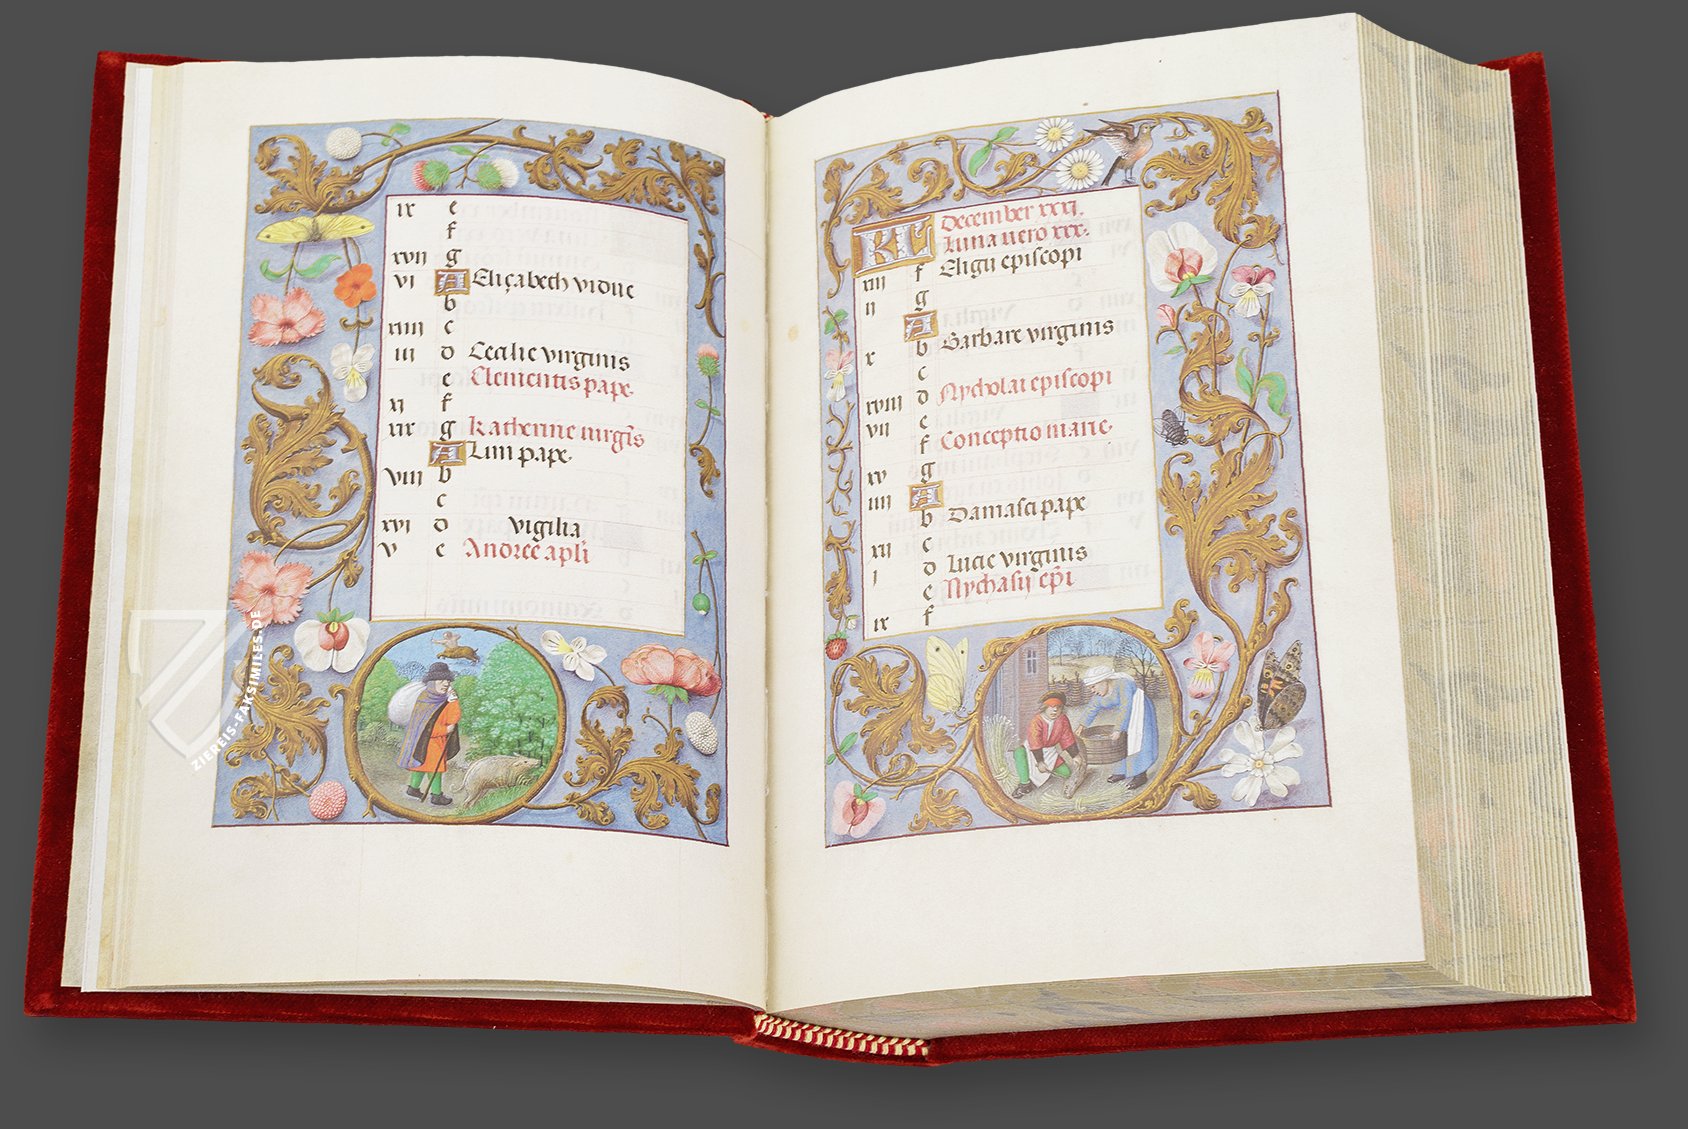 ix e
f
xvii g
vi A Elizabeth vidue
b
xiiii c
iii d Cecilie virginis
e Clementis pape.
xi f
xix g Katherine virgis
A Lini pape.
viii b
c
xvi d vigilia
v e Andree apli
KL December xxxi.
Luna vero xxx.
f Eligii episcopi
xiii g
ii A
b Barbare virginis
x c
d Nycholai episcopi
xviii e
vii f Conceptio marie.
g
xv A
iiii b Damasci pape
c
xii d Lucie virginis
i e Nychasii epi
f
ix
ZIEREIS-FAKSIMILES.DE